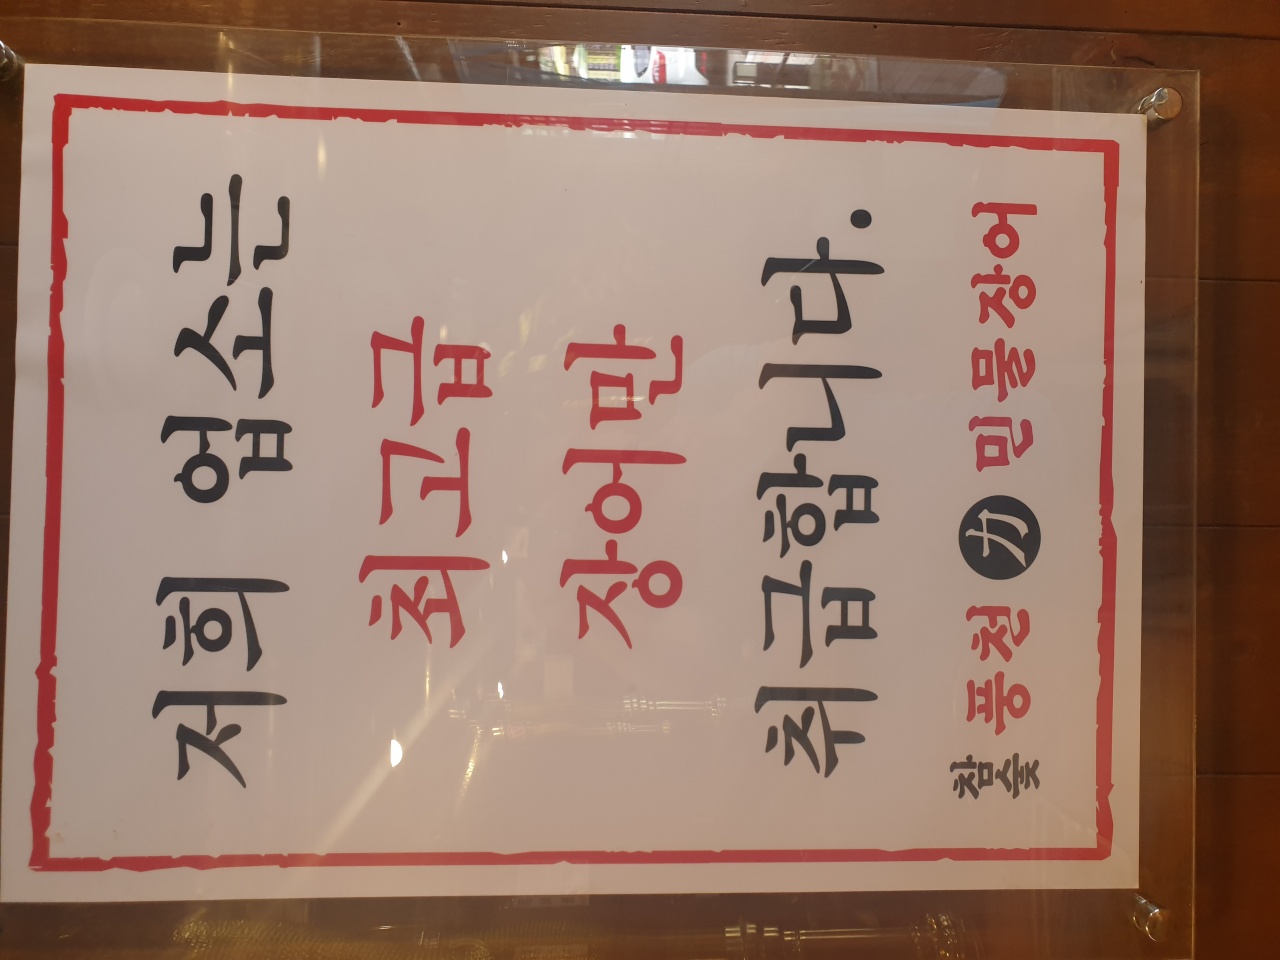 저희 업소는
최고급
장어만
취급합니다.
참숯 풍천 力 민물장어